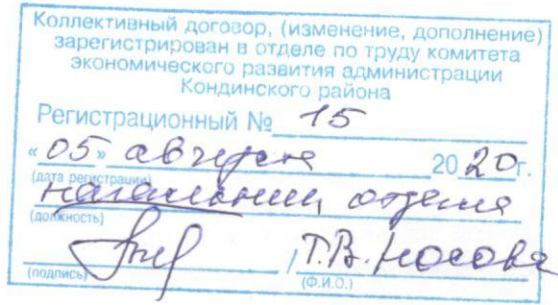 Коллективный договор, (изменение, дополнение)
зарегистрирован в отделе по труду комитета
экономического развития администрации
Кондинского района
Регистрационный № 15
«05» августа 2020г.
(дата регистрации)
начальник отдела
(должность)
/ Т.В. Носова
(подпись) (Ф.И.О.)